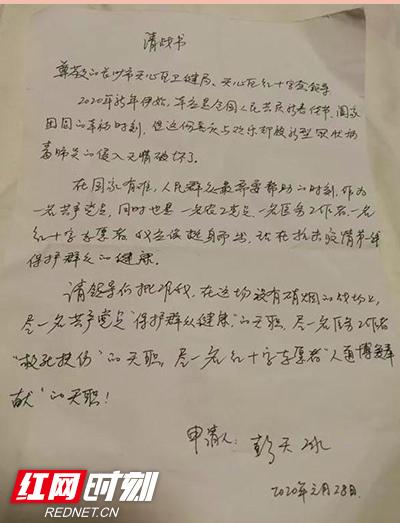 请战书
尊敬的长沙市天心区卫健局、天心区红十字会领导
2020年新年伊始，本应是全国人民共庆新春佳节，阖家
团圆的幸福时刻，但这份喜庆与欢乐却被新型冠状病
毒肺炎的侵入无情破坏了。
在国家有难，人民群众最需要帮助的时刻，作为
一名共产党员，同时也是一名农工党员，一名医务工作者，一名
红十字志愿者，我应该挺身而出，站在抗击疫情第一线
保护群众的健康。
请领导们批准我，在这场没有硝烟的战场上，
尽一名共产党员"保护群众健康"的天职，尽一名医务工作者
"救死扶伤"的天职，尽一名红十字志愿者"人道博爱奉
献"的天职！
申请人：彭天
2020年元月28日
红网时刻
REDNET.CN